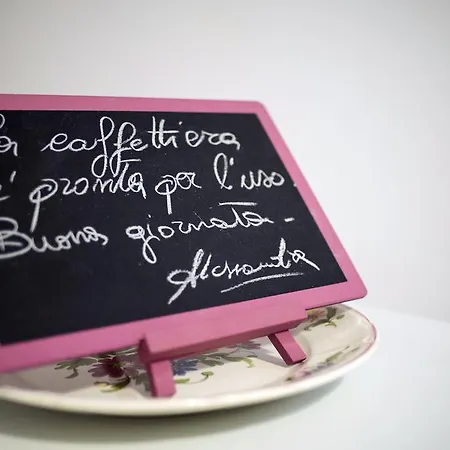 La caffettiera
è pronta per l'uso.
Buona giornata -
Alessandra